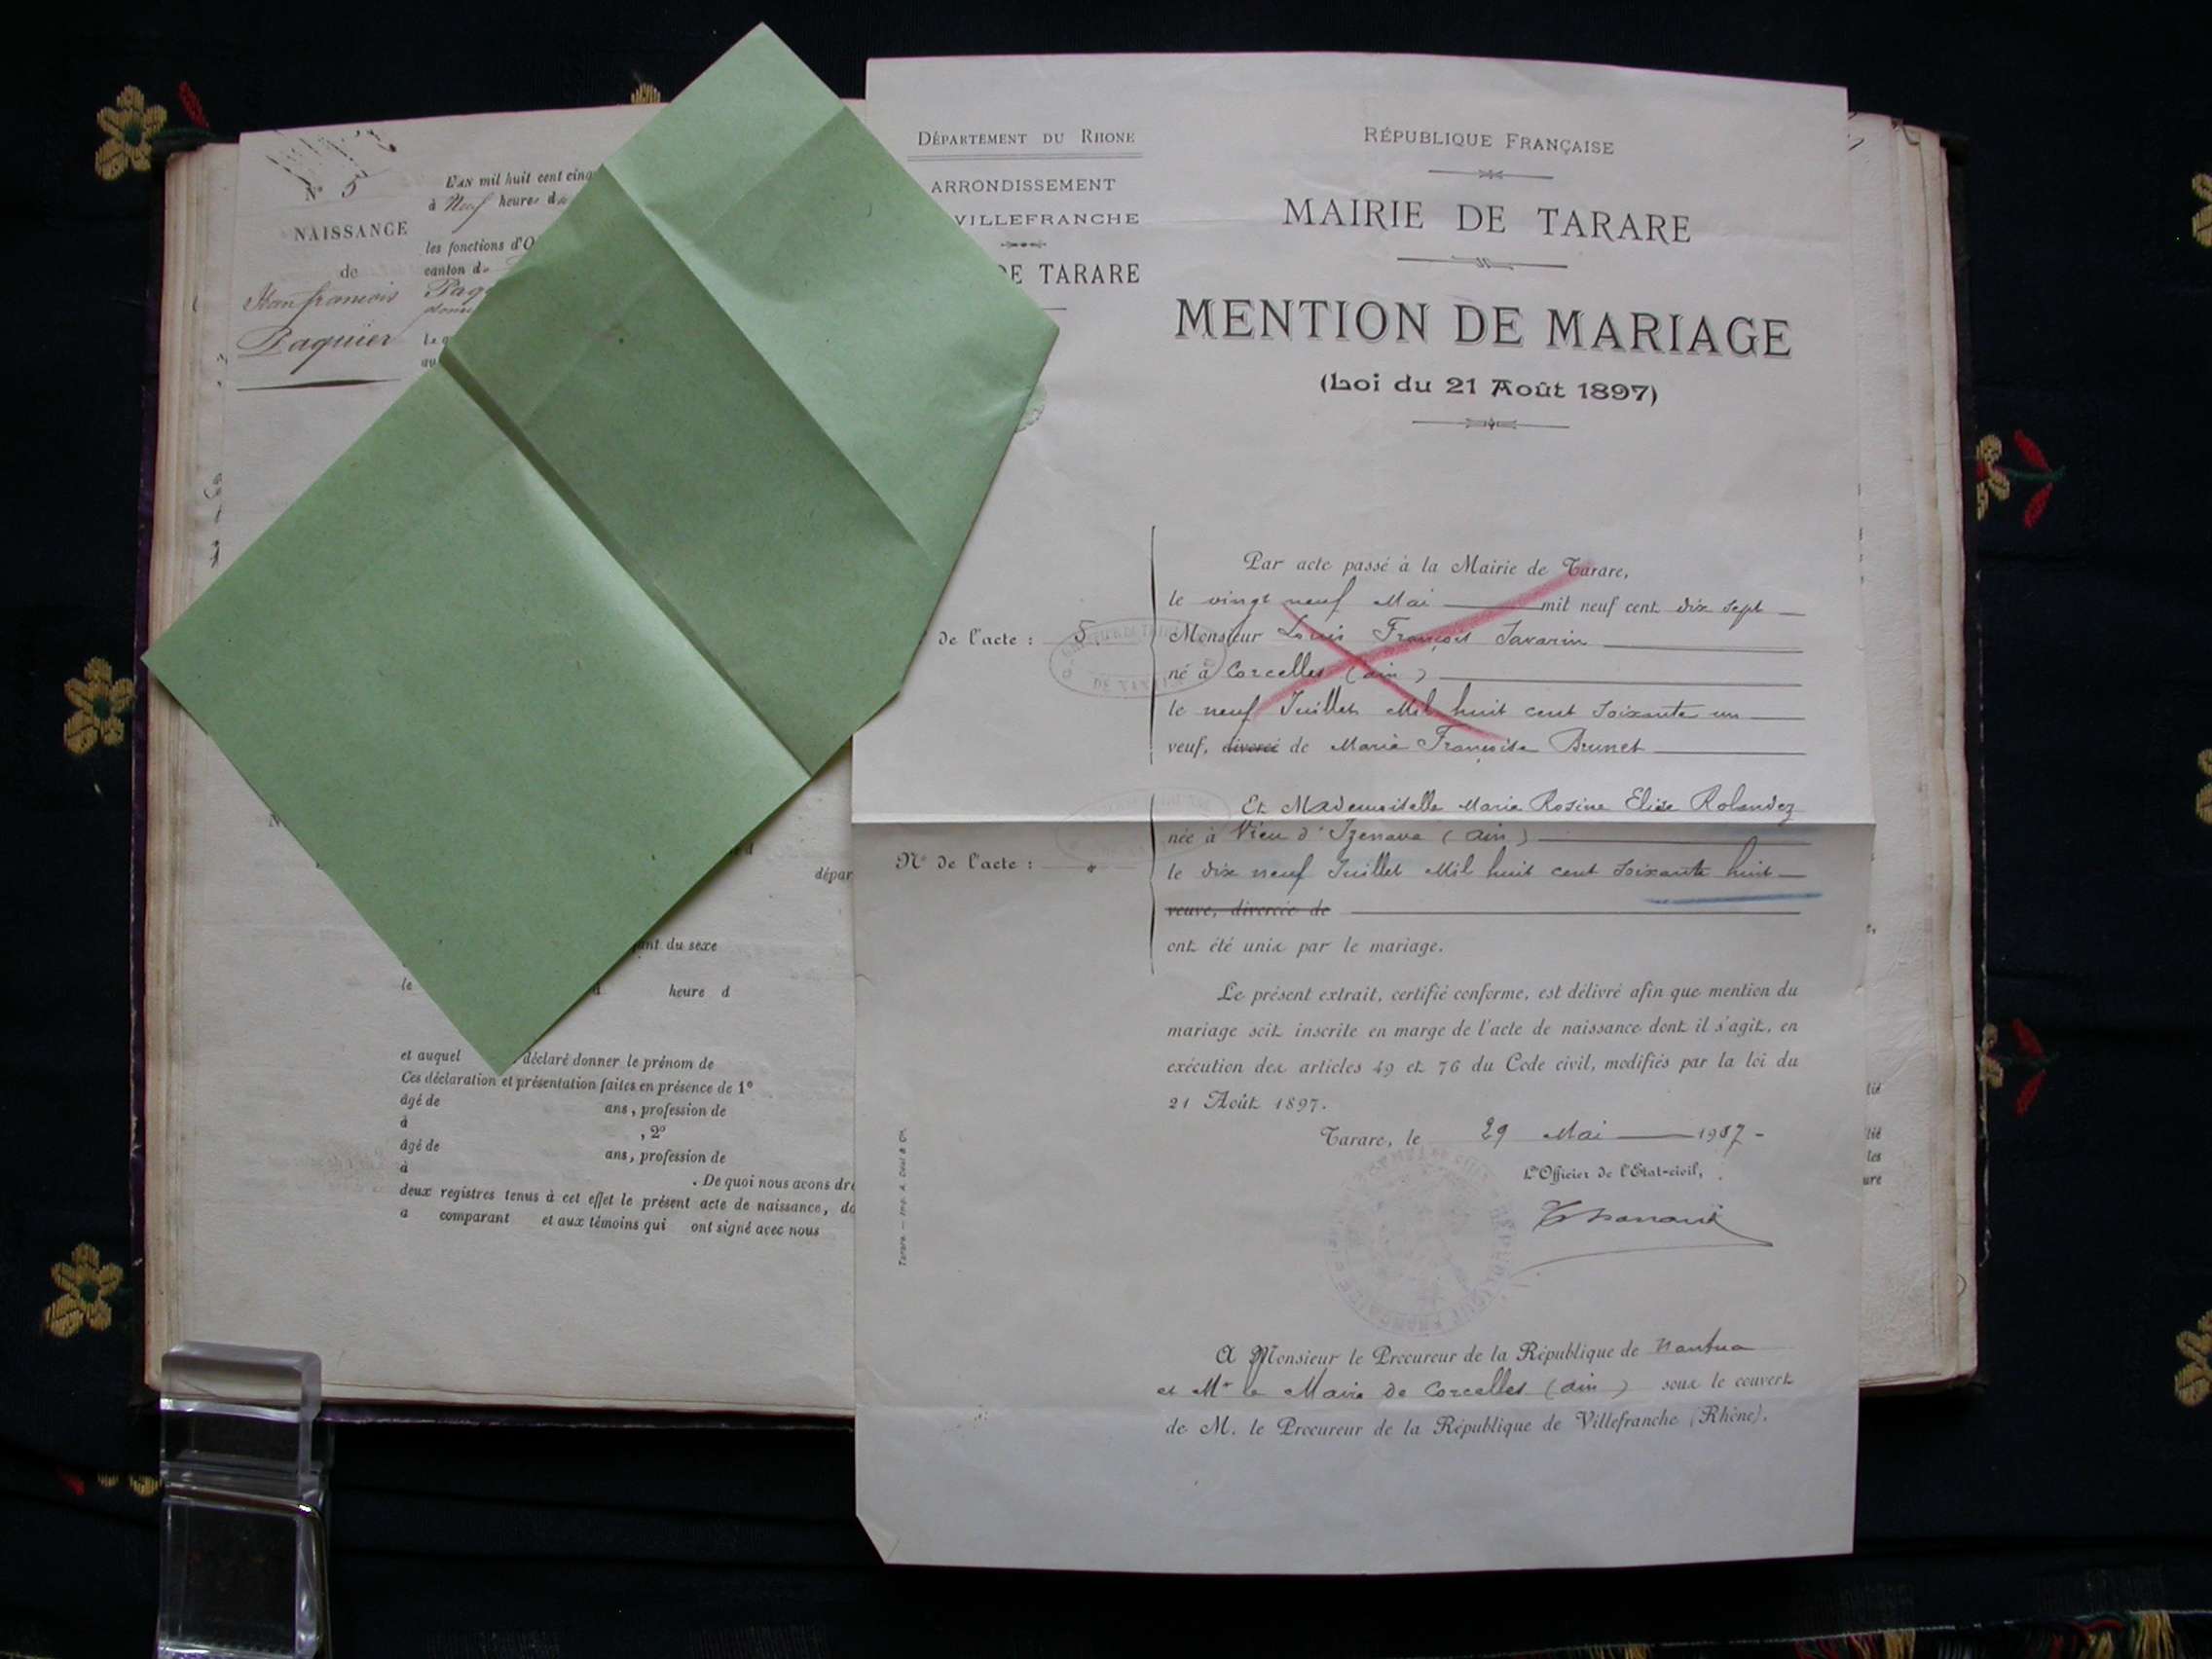 N° 5
NAISSANCE
de
Jean françois
Paquier
L'AN mil huit cent cinq
à Neuf heures du
les fonctions d'O
canton d
Le
au
dépar
du sexe
le
heure d
et auquel déclaré donner le prénom de
Ces déclaration et présentation faites en présence de 1°
âgé de ans, profession de
à , 2°
âgé de ans, profession de
à
. De quoi nous avons dre
deux registres tenus à cet effet le présent acte de naissance, do
a comparant et aux témoins qui ont signé avec nous
DÉPARTEMENT DU RHONE
ARRONDISSEMENT
VILLEFRANCHE
DE TARARE
RÉPUBLIQUE FRANÇAISE
MAIRIE DE TARARE
MENTION DE MARIAGE
(Loi du 21 Août 1897)
Par acte passé à la Mairie de Tarare,
le vingt neuf Mai mil neuf cent dix sept
de l'acte : 5
Monsieur Louis François Savarin
né à Corcelles (ain)
le neuf Juillet Mil huit cent Soixante un
veuf, divorcé de Marie Françoise Brunet
Et Mademoiselle Marie Rosine Elise Rolandez
née à Vieu d'Izenave (ain)
N° de l'acte : "
le dix neuf Juillet Mil huit cent soixante huit
veuve, divorcée de
ont été unis par le mariage.
Le présent extrait, certifié conforme, est délivré afin que mention du
mariage soit inscrite en marge de l'acte de naissance dont il s'agit, en
exécution des articles 49 et 76 du Code civil, modifiés par la loi du
21 Août 1897.
Tarare, le 29 Mai 1917
L'Officier de l'Etat-civil,
A Monsieur le Procureur de la République de Nantua
et Mr le Maire de Corcelles (ain) sous le couvert
de M. le Procureur de la République de Villefranche (Rhône).